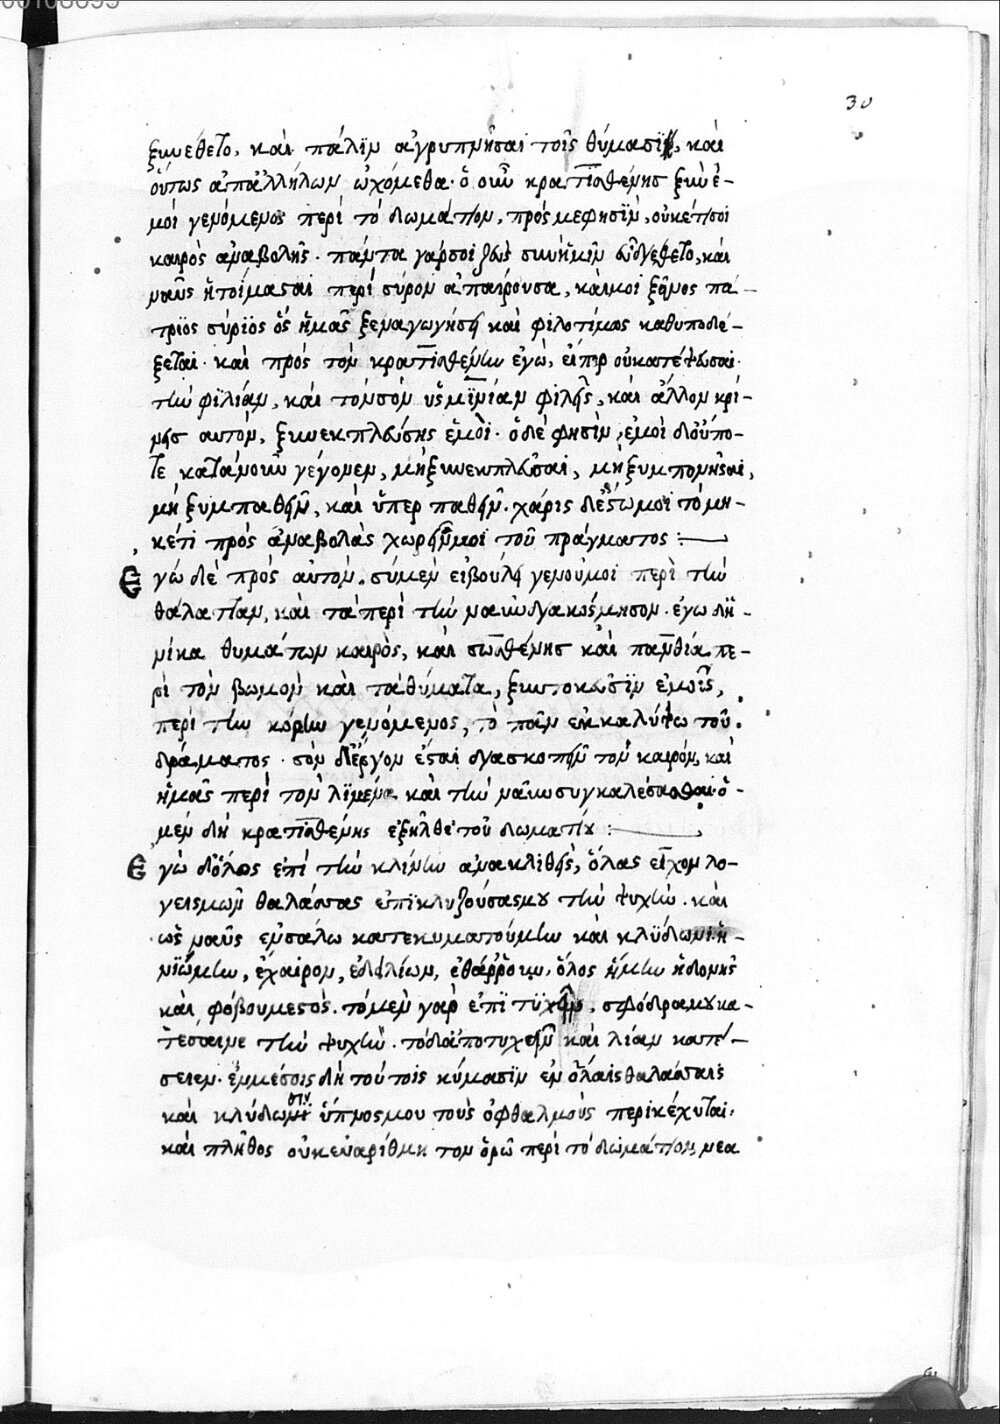 30
ξυνέθετο, καὶ πάλιν ἀγρυπνῆσαι τοῖς θύμασι, καὶ
οὕτως ἀπ' ἀλλήλων ᾠχόμεθα· ὁ οὖν κρατισθένης ξὺν ἐ-
μοὶ γενόμενος περὶ τὸ δωμάτιον, πρός με φησὶν, οὐκέτι σοι
καιρὸς ἀναβολῆς· πάντα γάρ σοι ζεὺς σὺν ἡμῖν εὖ διέθετο, καὶ
ναῦς ἡτοίμασται περὶ σύρον ἀπαίρουσα, κἀμοὶ ξένος πά-
τριος σύριος ὃς ἡμᾶς ξεναγωγήσει καὶ φιλοτίμως καθυποδέ-
ξεται· καὶ πρὸς τὸν κρατισθένην ἐγὼ, εἴπερ οὐκ ἀτέψωσαι
τὴν φιλίαν, καὶ τὸν σὸν ὑσμινίαν φιλεῖς, καὶ ἄλλον κρί-
νεις αὐτὸν, ξυνεκπλεύσεις ἐμοί· ὁ δέ φησὶν, ἐμοὶ δ' οὔπο-
τε κατὰ νοῦν γέγονεν, μὴ ξυνεκπλεῦσαι, μὴ ξυμπονῆσαι,
μὴ ξυμπαθεῖν, καὶ ὕπερ παθεῖν· χάρις δ' ἔστω μοι τὸ μη-
κέτι πρὸς ἀναβολὰς χωρεῖν μοι τοῦ πράγματος :
Ἐγὼ δὲ πρὸς αὐτὸν, σὺ μὲν εἰ βούλει γενοῦ μοι περὶ τὴν
θάλατταν, καὶ τὰ περὶ τὴν ναῦν διακόσμησον· ἐγὼ δ' ἡ-
νίκα θυμάτων καιρὸς, καὶ σωσθένης καὶ πανθία πε-
ρὶ τὸν βωμὸν καὶ τὰ θύματα, ξὺν τοκεῦσιν ἐμοῖς,
περὶ τὴν κόρην γενόμενος, τὸ πᾶν ἐκκαλύψω τοῦ
δράματος· σὸν δ' ἔργον ἔσται διασκοπεῖν τὸν καιρὸν, καὶ
ἡμᾶς περὶ τὸν λιμένα καὶ τὴν ναῦν συγκαλέσασθαι· ὁ
μὲν δὴ κρατισθένης ἐξῆλθε τοῦ δωματίου :
Ἐγὼ δ' ὅλος ἐπὶ τὴν κλίνην ἀνακλιθεὶς, ὅλας εἶχον λο-
γισμῶν θαλάσσας ἐπικλυζούσας μου τὴν ψυχὴν. καὶ
ὡς ναῦς ἐν σάλω κατεκυματούμην καὶ κλύδωνι· ἠ-
νιώμην, ἔχαιρον, ἐδειλίων, ἐθάρρουν, ὅλος ἤμην ἡδονῆς
καὶ φόβου μεστὸς· τὸ μὲν γὰρ ἐπιτυχεῖν, σφόδρα μου κα-
τέσαινε τὴν ψυχὴν· τὸ δ' ἀποτυχεῖν καὶ λίαν κατέ-
σειεν· ἐν μέσοις δὴ τούτοις κύμασιν ἐν ὅλαις θαλάσσαις
καὶ κλύδωσιν ὕπνος μου τοὺς ὀφθαλμοὺς περικέχυται,
καὶ πλῆθος οὐκ ἐναρίθμητον ὁρῶ περὶ τὸ δωμάτιον, νεα